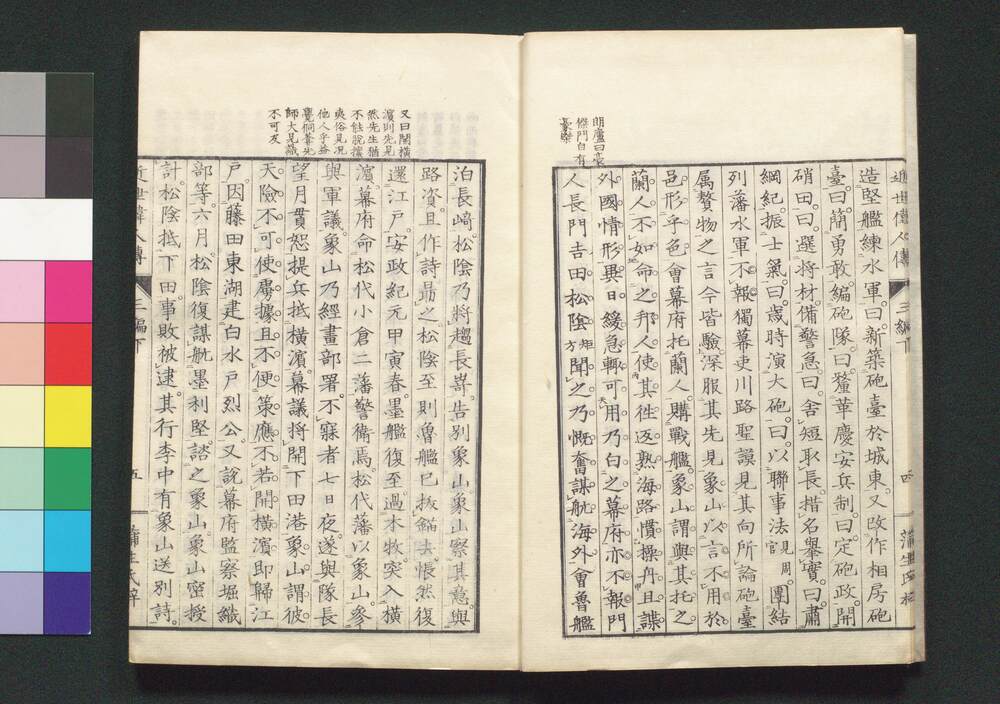 近世偉人傳 三編下 四 蒲生氏梓
造堅艦練水軍。曰。新築砲臺於城東。又改作相房砲
臺。曰。簡勇敢。編砲隊。曰。釐革慶安兵制。曰。定砲政。開
硝田。曰。選將材。備警急。曰。舍短取長。措名擧實。曰。肅
綱紀。振士氣。曰。歲時演大砲。曰。以聯事法見周官團結
列藩水軍。不報。獨幕吏川路聖謨見其向所論砲臺
属贅物之言。今皆驗。深服其先見。象山以言不用於
邑形乎色。會幕府托蘭人。購戰艦。象山謂與其托之
蘭人。不如命之邦人。使其徃返熟海路慣操舟。且諜
外國情形。異日緩急輙可用。乃白之幕府。亦不報。門
人長門吉田松陰矩方聞之。乃慨奮謀航海外。會魯艦
朗廬曰豪
傑門自有
豪傑
泊長﨑。松陰乃將趨長﨑。告別象山。象山察其意。與
路資。且作詩勗之。松陰至則魯艦已拔錨去。悵然復
還江戶。安政紀元甲寅春。墨艦復至。過本牧突入橫
濱。幕府命松代小倉二藩警衞焉。松代藩以象山參
與軍議。象山乃經畫部署。不寐者七日夜。遂與隊長
望月貫恕提兵抵橫濱。幕議將開下田港。象山謂彼
天險不可使虜據。且不便策應。不若開橫濱。即歸江
戶。因藤田東湖建白水戶烈公。又說幕府監察堀織
部等。六月。松陰復謀航墨利堅。諮之象山。象山密授
計。松陰抵下田。事敗被逮。其行李中有象山送別詩。
近世偉人傳 三編下 五 蒲生氏梓
又曰開橫
濱則先見
然先生猶
不能脫攘
夷俗見况
他人乎益
覺桐葊先
師大見識
不可及